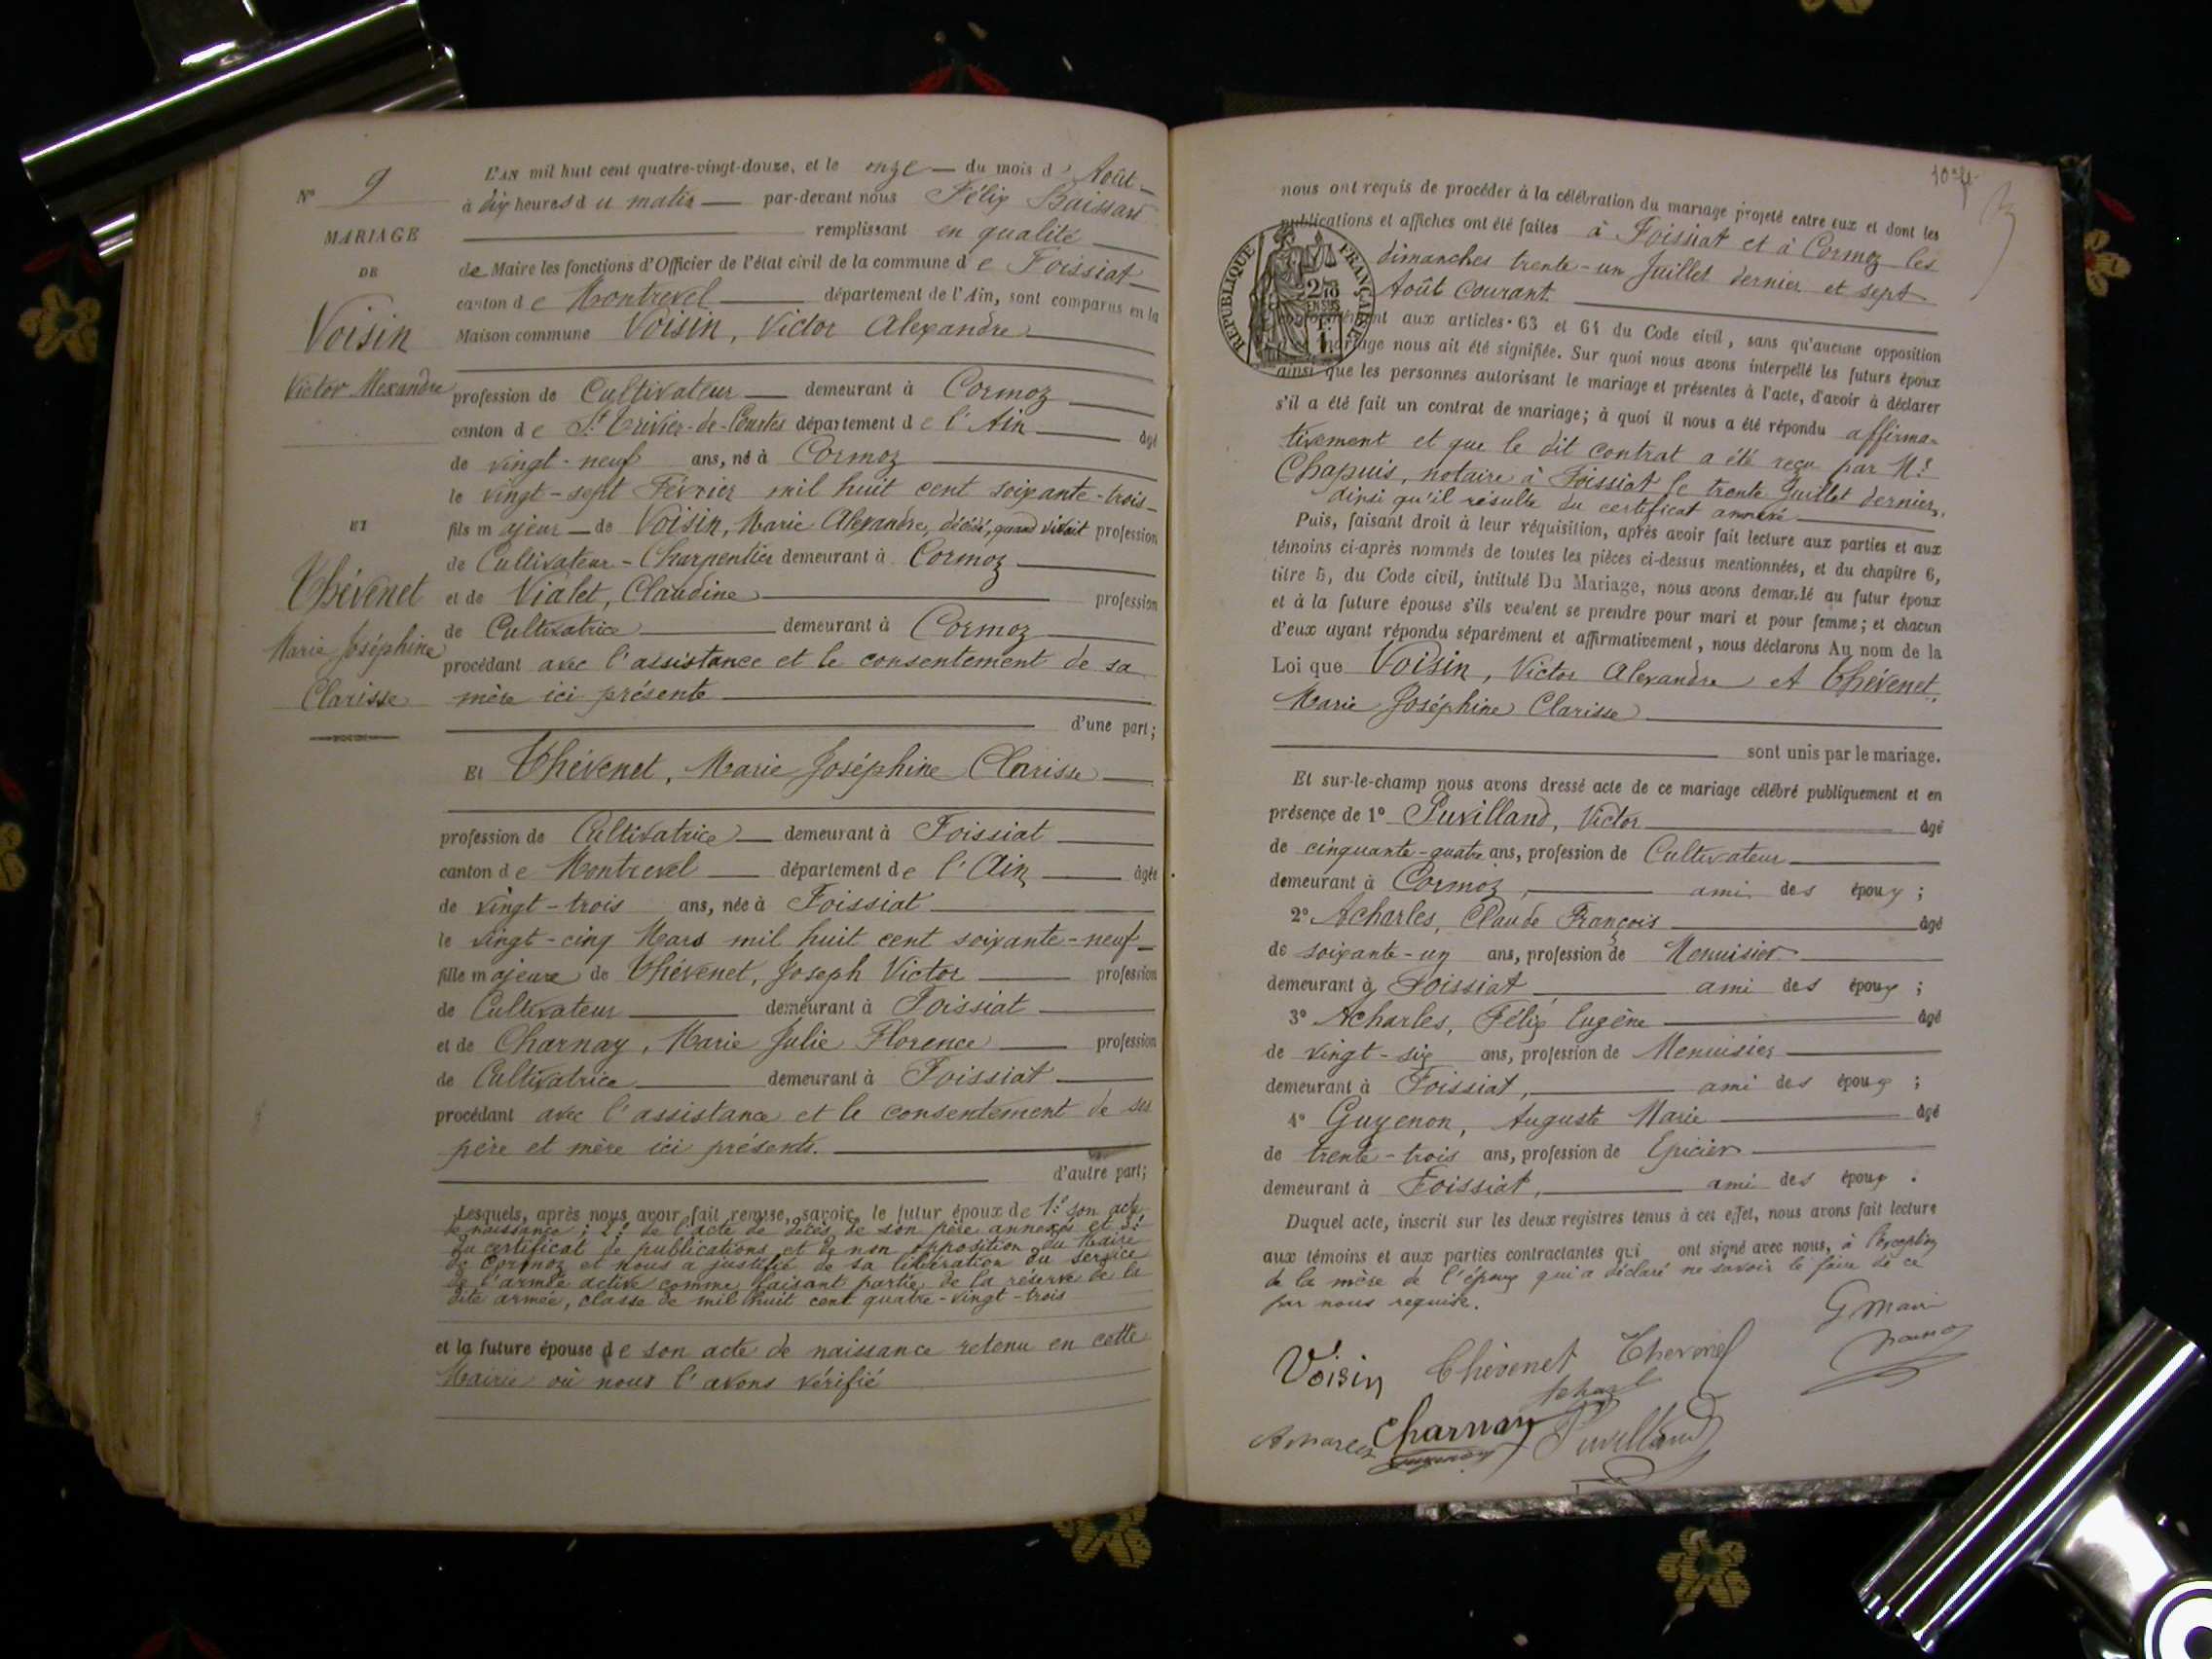 N° 9
MARIAGE
DE
Voisin
Victor Alexandre
ET
Thévenet
Marie Joséphine
Clarisse
L'AN mil huit cent quatre-vingt-douze, et le onze du mois d'Août
à dix heures du matin par-devant nous Félix
remplissant en qualité
de Maire les fonctions d'Officier de l'état civil de la commune de Foissiat
canton de Montrevel département de l'Ain, sont comparus en la
Maison commune Voisin, Victor Alexandre
profession de Cultivateur demeurant à Cormoz
canton de St Trivier-de-Courtes département de l'Ain âgé
de vingt-neuf ans, né à Cormoz
le vingt-sept Février mil huit cent soixante-trois
fils majeur de Voisin, Marie Alexandre, décédé, quand vivait profession
de Cultivateur-Charpentier demeurant à Cormoz
et de Vialet, Claudine profession
de Cultivatrice demeurant à Cormoz
procédant avec l'assistance et le consentement de sa
mère ici présente
d'une part;
Et Thévenet, Marie Joséphine Clarisse
profession de Cultivatrice demeurant à Foissiat
canton de Montrevel département de l'Ain âgée
de vingt-trois ans, née à Foissiat
le vingt-cinq Mars mil huit cent soixante-neuf
fille majeure de Thévenet, Joseph Victor profession
de Cultivateur demeurant à Foissiat
et de Charnay, Marie Julie Florence profession
de Cultivatrice demeurant à Foissiat
procédant avec l'assistance et le consentement de ses
père et mère ici présents.
d'autre part;
Lesquels, après nous avoir fait remise, savoir, le futur époux de 1° son acte
de naissance; 2° de l'acte de décès de son père annexés et 3°
du certificat de publications et de non opposition du Maire
de Cormoz et nous a justifié de sa libération du service
de l'armée active comme faisant partie de la réserve de la
dite armée, classe de mil huit cent quatre-vingt-trois
et la future épouse de son acte de naissance retenu en cette
Mairie où nous l'avons vérifié
nous ont requis de procéder à la célébration du mariage projeté entre eux et dont les
publications et affiches ont été faites à Foissiat et à Cormoz les
dimanches trente-un Juillet dernier et sept
Août courant.
REPUBLIQUE FRANÇAISE
2/10
EN SUS
1F.
conformément aux articles 63 et 64 du Code civil, sans qu'aucune opposition
mariage nous ait été signifiée. Sur quoi nous avons interpellé les futurs époux
ainsi que les personnes autorisant le mariage et présentes à l'acte, d'avoir à déclarer
s'il a été fait un contrat de mariage; à quoi il nous a été répondu affirma-
tivement et que le dit contrat a été reçu par Me
Chapuis, notaire à Foissiat le trente Juillet dernier,
ainsi qu'il résulte du certificat annexé
Puis, faisant droit à leur réquisition, après avoir fait lecture aux parties et aux
témoins ci-après nommés de toutes les pièces ci-dessus mentionnées, et du chapitre 6,
titre 5, du Code civil, intitulé Du Mariage, nous avons demandé au futur époux
et à la future épouse s'ils veulent se prendre pour mari et pour femme; et chacun
d'eux ayant répondu séparément et affirmativement, nous déclarons Au nom de la
Loi que Voisin, Victor Alexandre et Thévenet,
Marie Joséphine Clarisse
sont unis par le mariage.
Et sur-le-champ nous avons dressé acte de ce mariage célébré publiquement et en
présence de 1° Puvilland, Victor âgé
de cinquante-quatre ans, profession de Cultivateur
demeurant à Cormoz, ami des époux;
2° Acharles, Claude François âgé
de soixante-un ans, profession de Menuisier
demeurant à Foissiat, ami des époux;
3° Acharles, Félix Eugène âgé
de vingt-six ans, profession de Menuisier
demeurant à Foissiat, ami des époux;
4° Guyenon, Auguste Marie âgé
de trente-trois ans, profession de Epicier
demeurant à Foissiat, ami des époux.
Duquel acte, inscrit sur les deux registres tenus à cet effet, nous avons fait lecture
aux témoins et aux parties contractantes qui ont signé avec nous, à l'exception
de la mère de l'époux qui a déclaré ne savoir le faire de ce
par nous requise.
Voisin Thévenet Thévenet
Charnay Puvilland